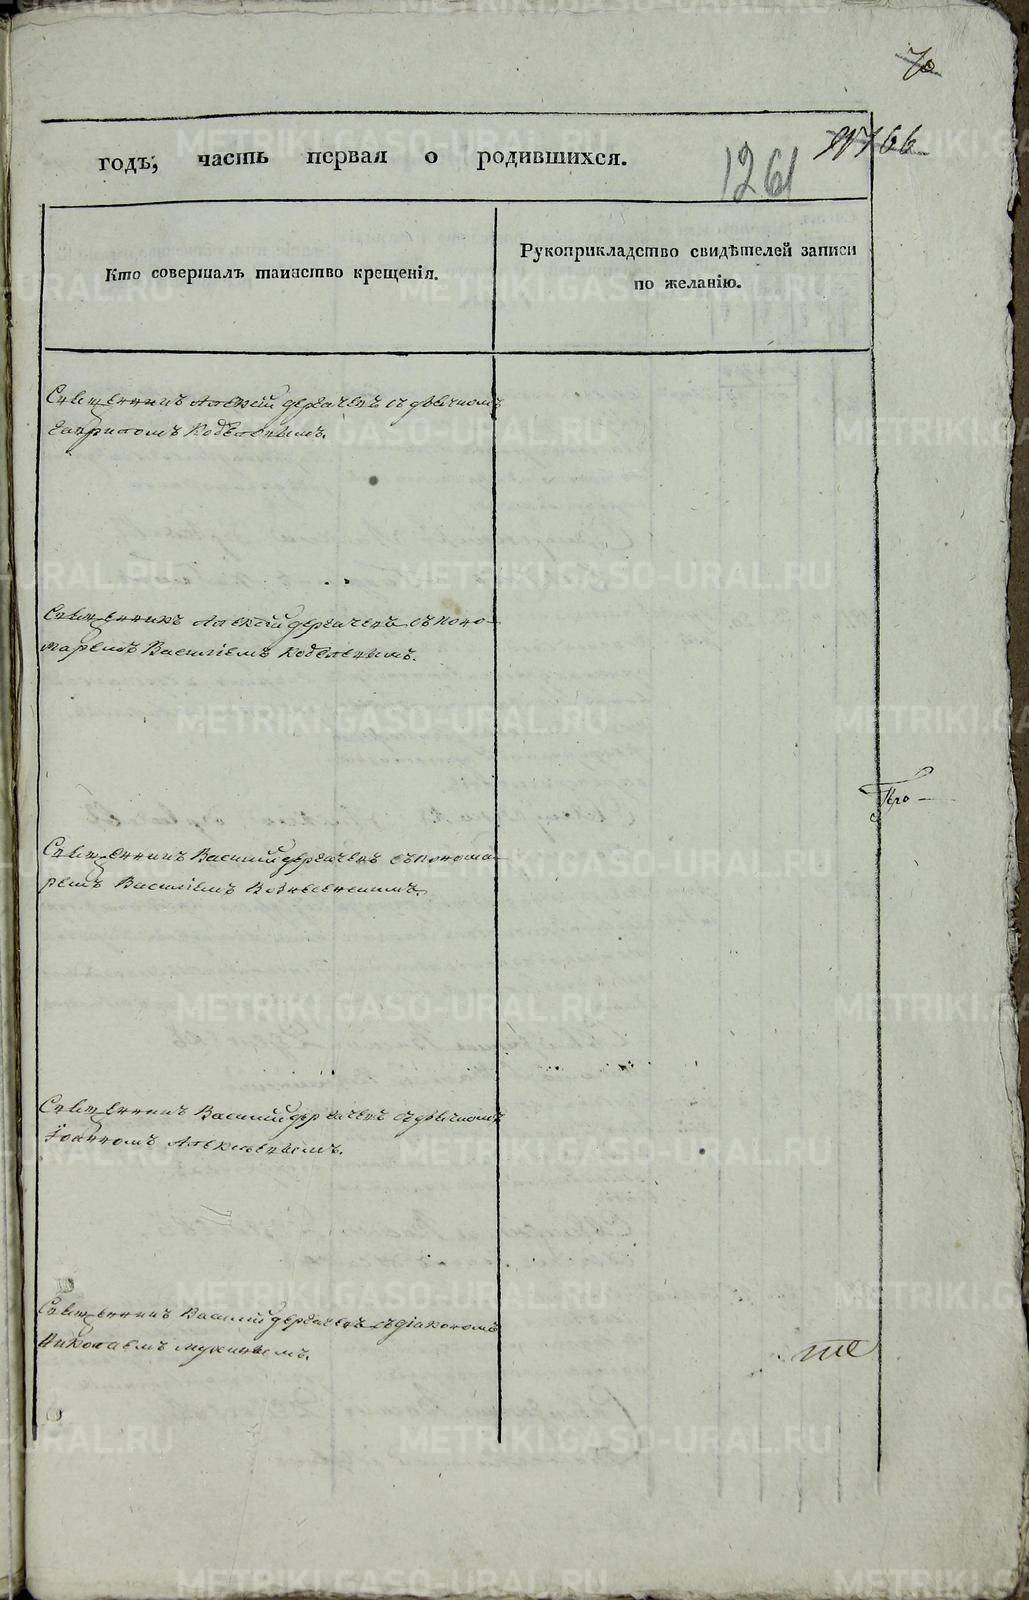 70
годъ, часть первая о родившихся.
1261
66
Кто совершалъ таинство крещенія.
Рукоприкладство свидѣтелей записи
по желанію.
Священникъ Алексій Дергачевъ съ дьячкомъ
Кобелевымъ.
Священникъ Алексій Дергачевъ съ поно-
маремъ Василіемъ Кобелевымъ.
Про-
Священникъ Василій Дергачевъ съ понома-
ремъ Василіемъ Вознесенскимъ.
Священникъ Василій Дергачевъ съ дьячкомъ
Іоанномъ Алексѣевымъ.
Священникъ Василій Дергачевъ съ діакономъ
Николаемъ Мухинымъ.
METRIKI.GASO-URAL.RU